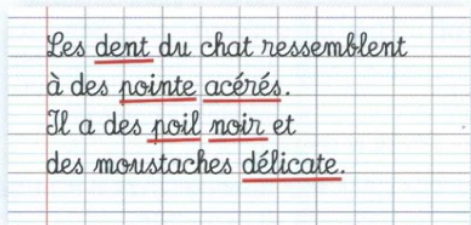 Les dent du chat ressemblent
à des pointe acérés.
Il a des poil noir et
des moustaches délicate.